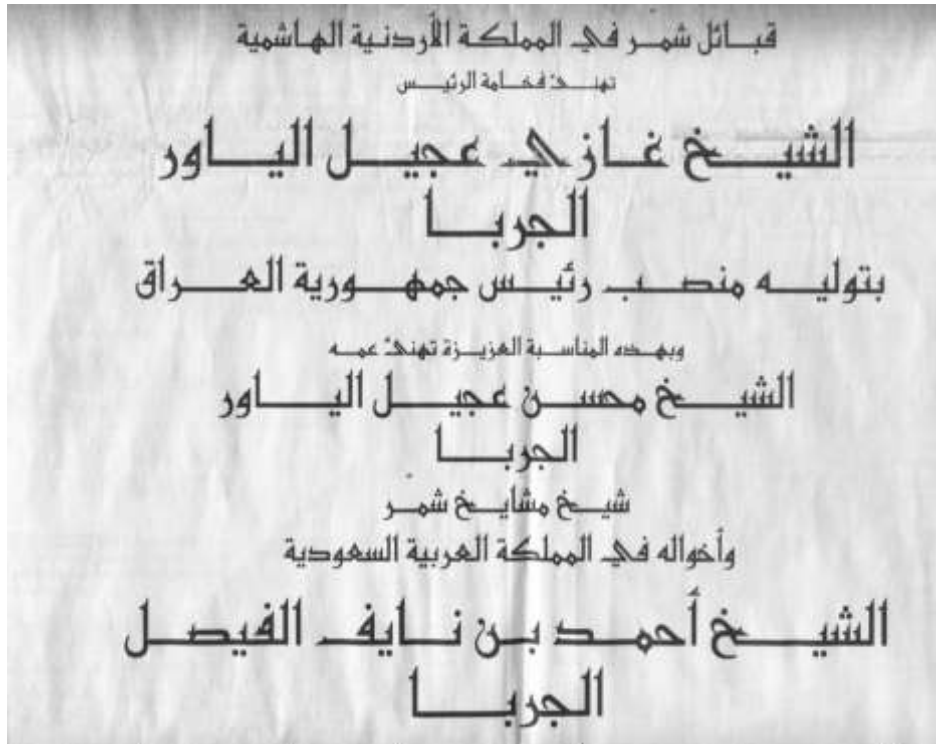 قبائل شمر في المملكة الأردنية الهاشمية
تهنئ فخامة الرئيس
الشيخ غازي عجيل الياور
الجربا
بتوليه منصب رئيس جمهورية العراق
وبهذه المناسبة العزيزة تهنئ عمه
الشيخ محسن عجيل الياور
الجربا
شيخ مشايخ شمر
وأخواله في المملكة العربية السعودية
الشيخ أحمد بن نايف الفيصل
الجربا